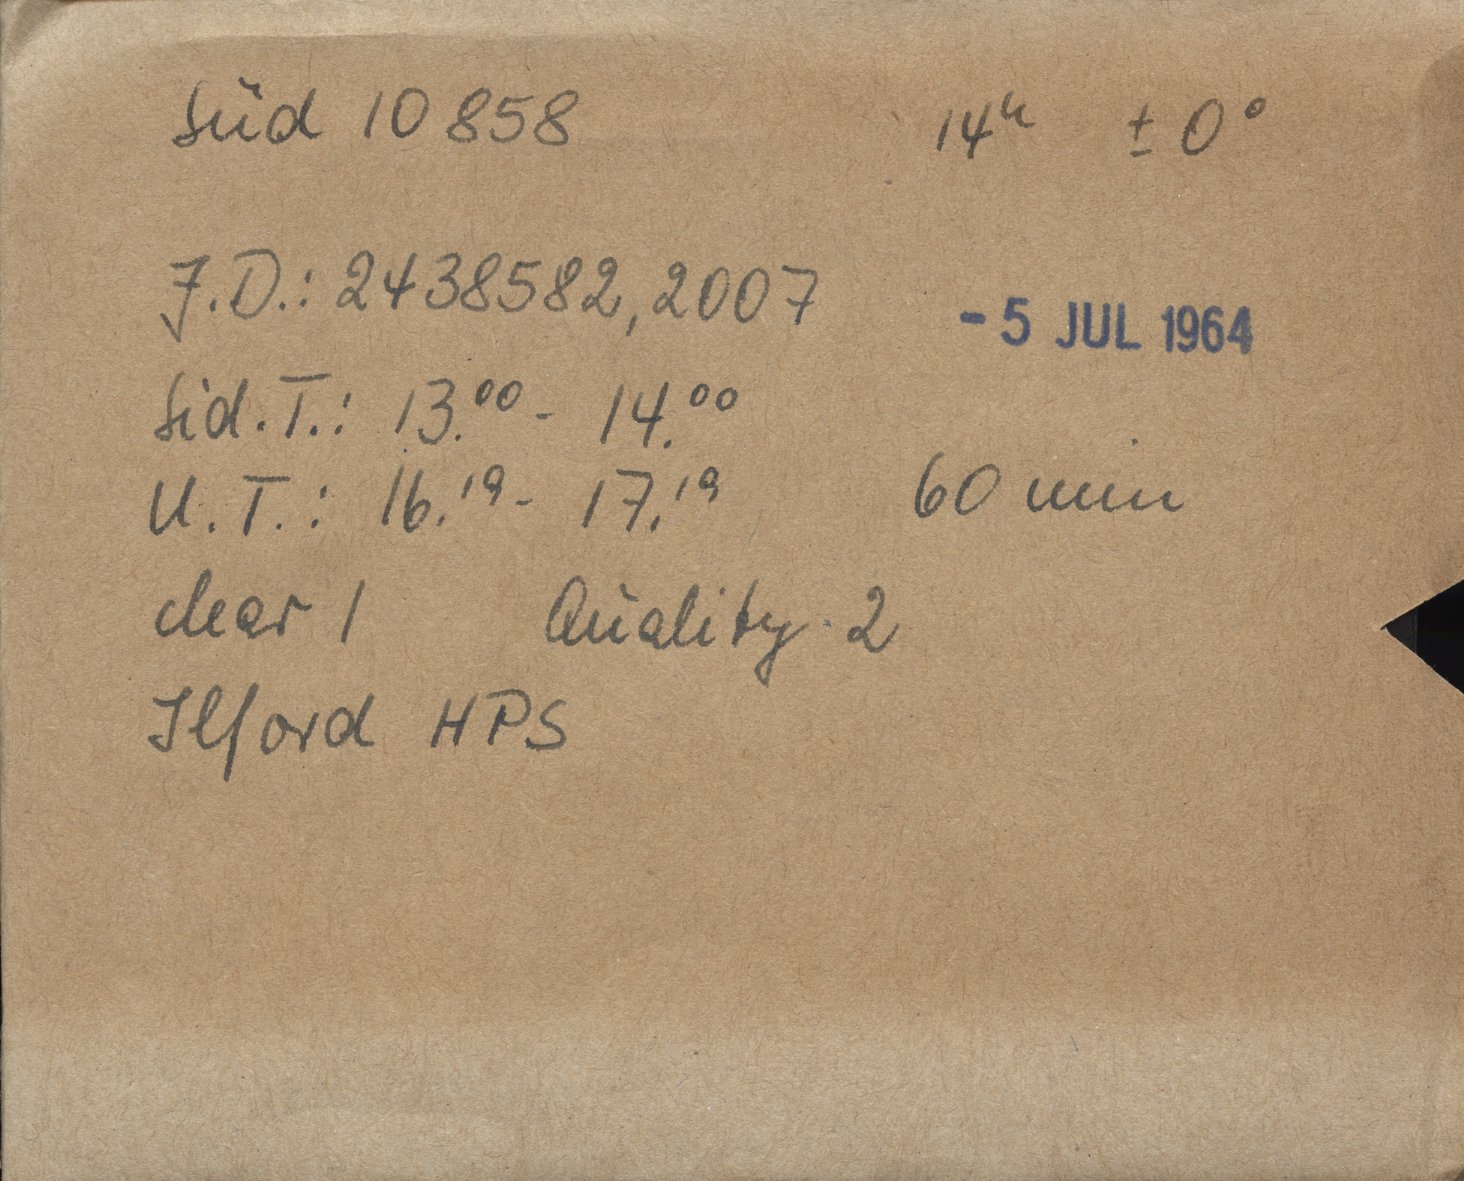 Süd 10858 14ʰ ± 0°
J.D.: 2438582,2007 - 5 JUL 1964
Sid.T.: 13.⁰⁰ - 14.⁰⁰
U.T.: 16.¹⁹ - 17.¹⁹ 60 min
clear 1 Quality 2
Ilford HPS